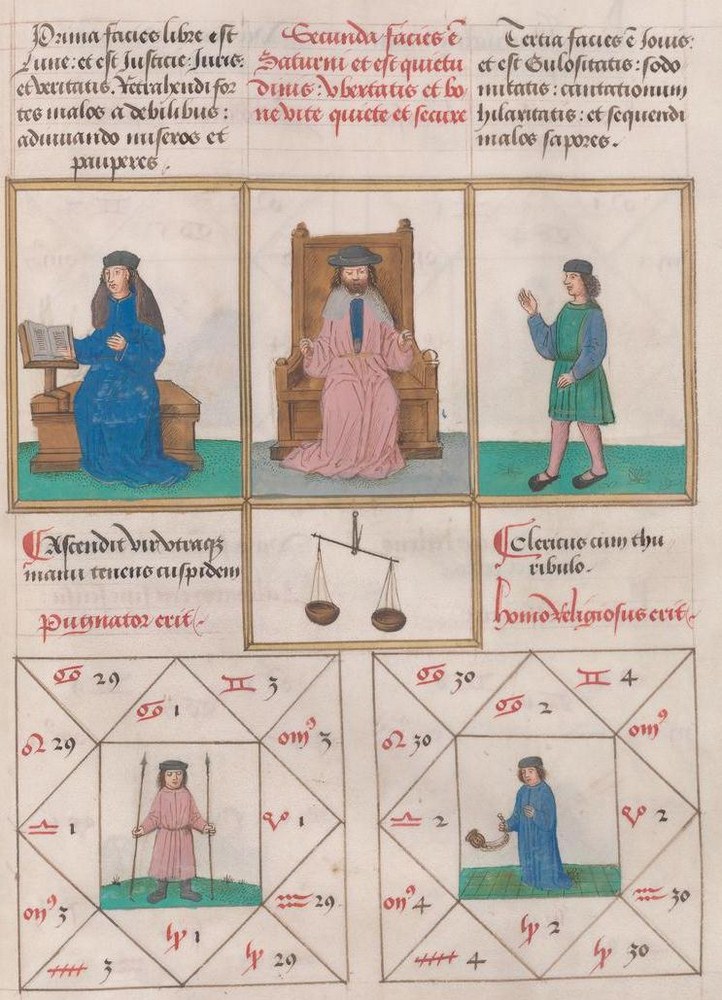 Prima facies libre est
Lune: et est Iusticie: Iuris:
et veritatis. Retrahendi for
tes malos a debilibus:
adiuuando miseros et
pauperes.
Secunda facies ē
Saturni et est quietu
dinis: vbertatis et bo
ne vite quiete et secure
Tertia facies ē Iouis:
et est Gulositatis: sodo
mitatis: cantationum
hilaritatis: et sequendi
malos sapores.
Ascendit vir vtraqz
manu tenens cuspidem
Pugnator erit
Clericus cum thu
ribulo.
homo Religiosus erit
♋ 29
♊ 3
♋ 1
♌ 29
3
♎ 1
1
♒ 29
3
1
3
29
♋ 30
♊ 4
♋ 2
♌ 30
♎ 2
2
♒ 30
4
2
4
30